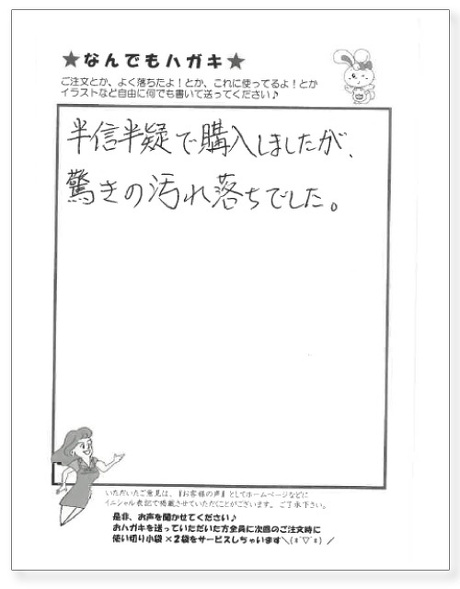 ★なんでもハガキ★
ご注文とか、よく落ちたよ！とか、これに使ってるよ！とか
イラストなど自由に何でも書いて送ってください♪
半信半疑で購入しましたが、
驚きの汚れ落ちでした。
いただいたご意見は、『お客様の声』としてホームページなどに
イニシャル表記で掲載させていただくことがございます。ご了承下さい。
是非、お声を聞かせてください♪
おハガキを送っていただいた方全員に次回のご注文時に
使い切り小袋×2袋をサービスしちゃいます＼(≧▽≦)／